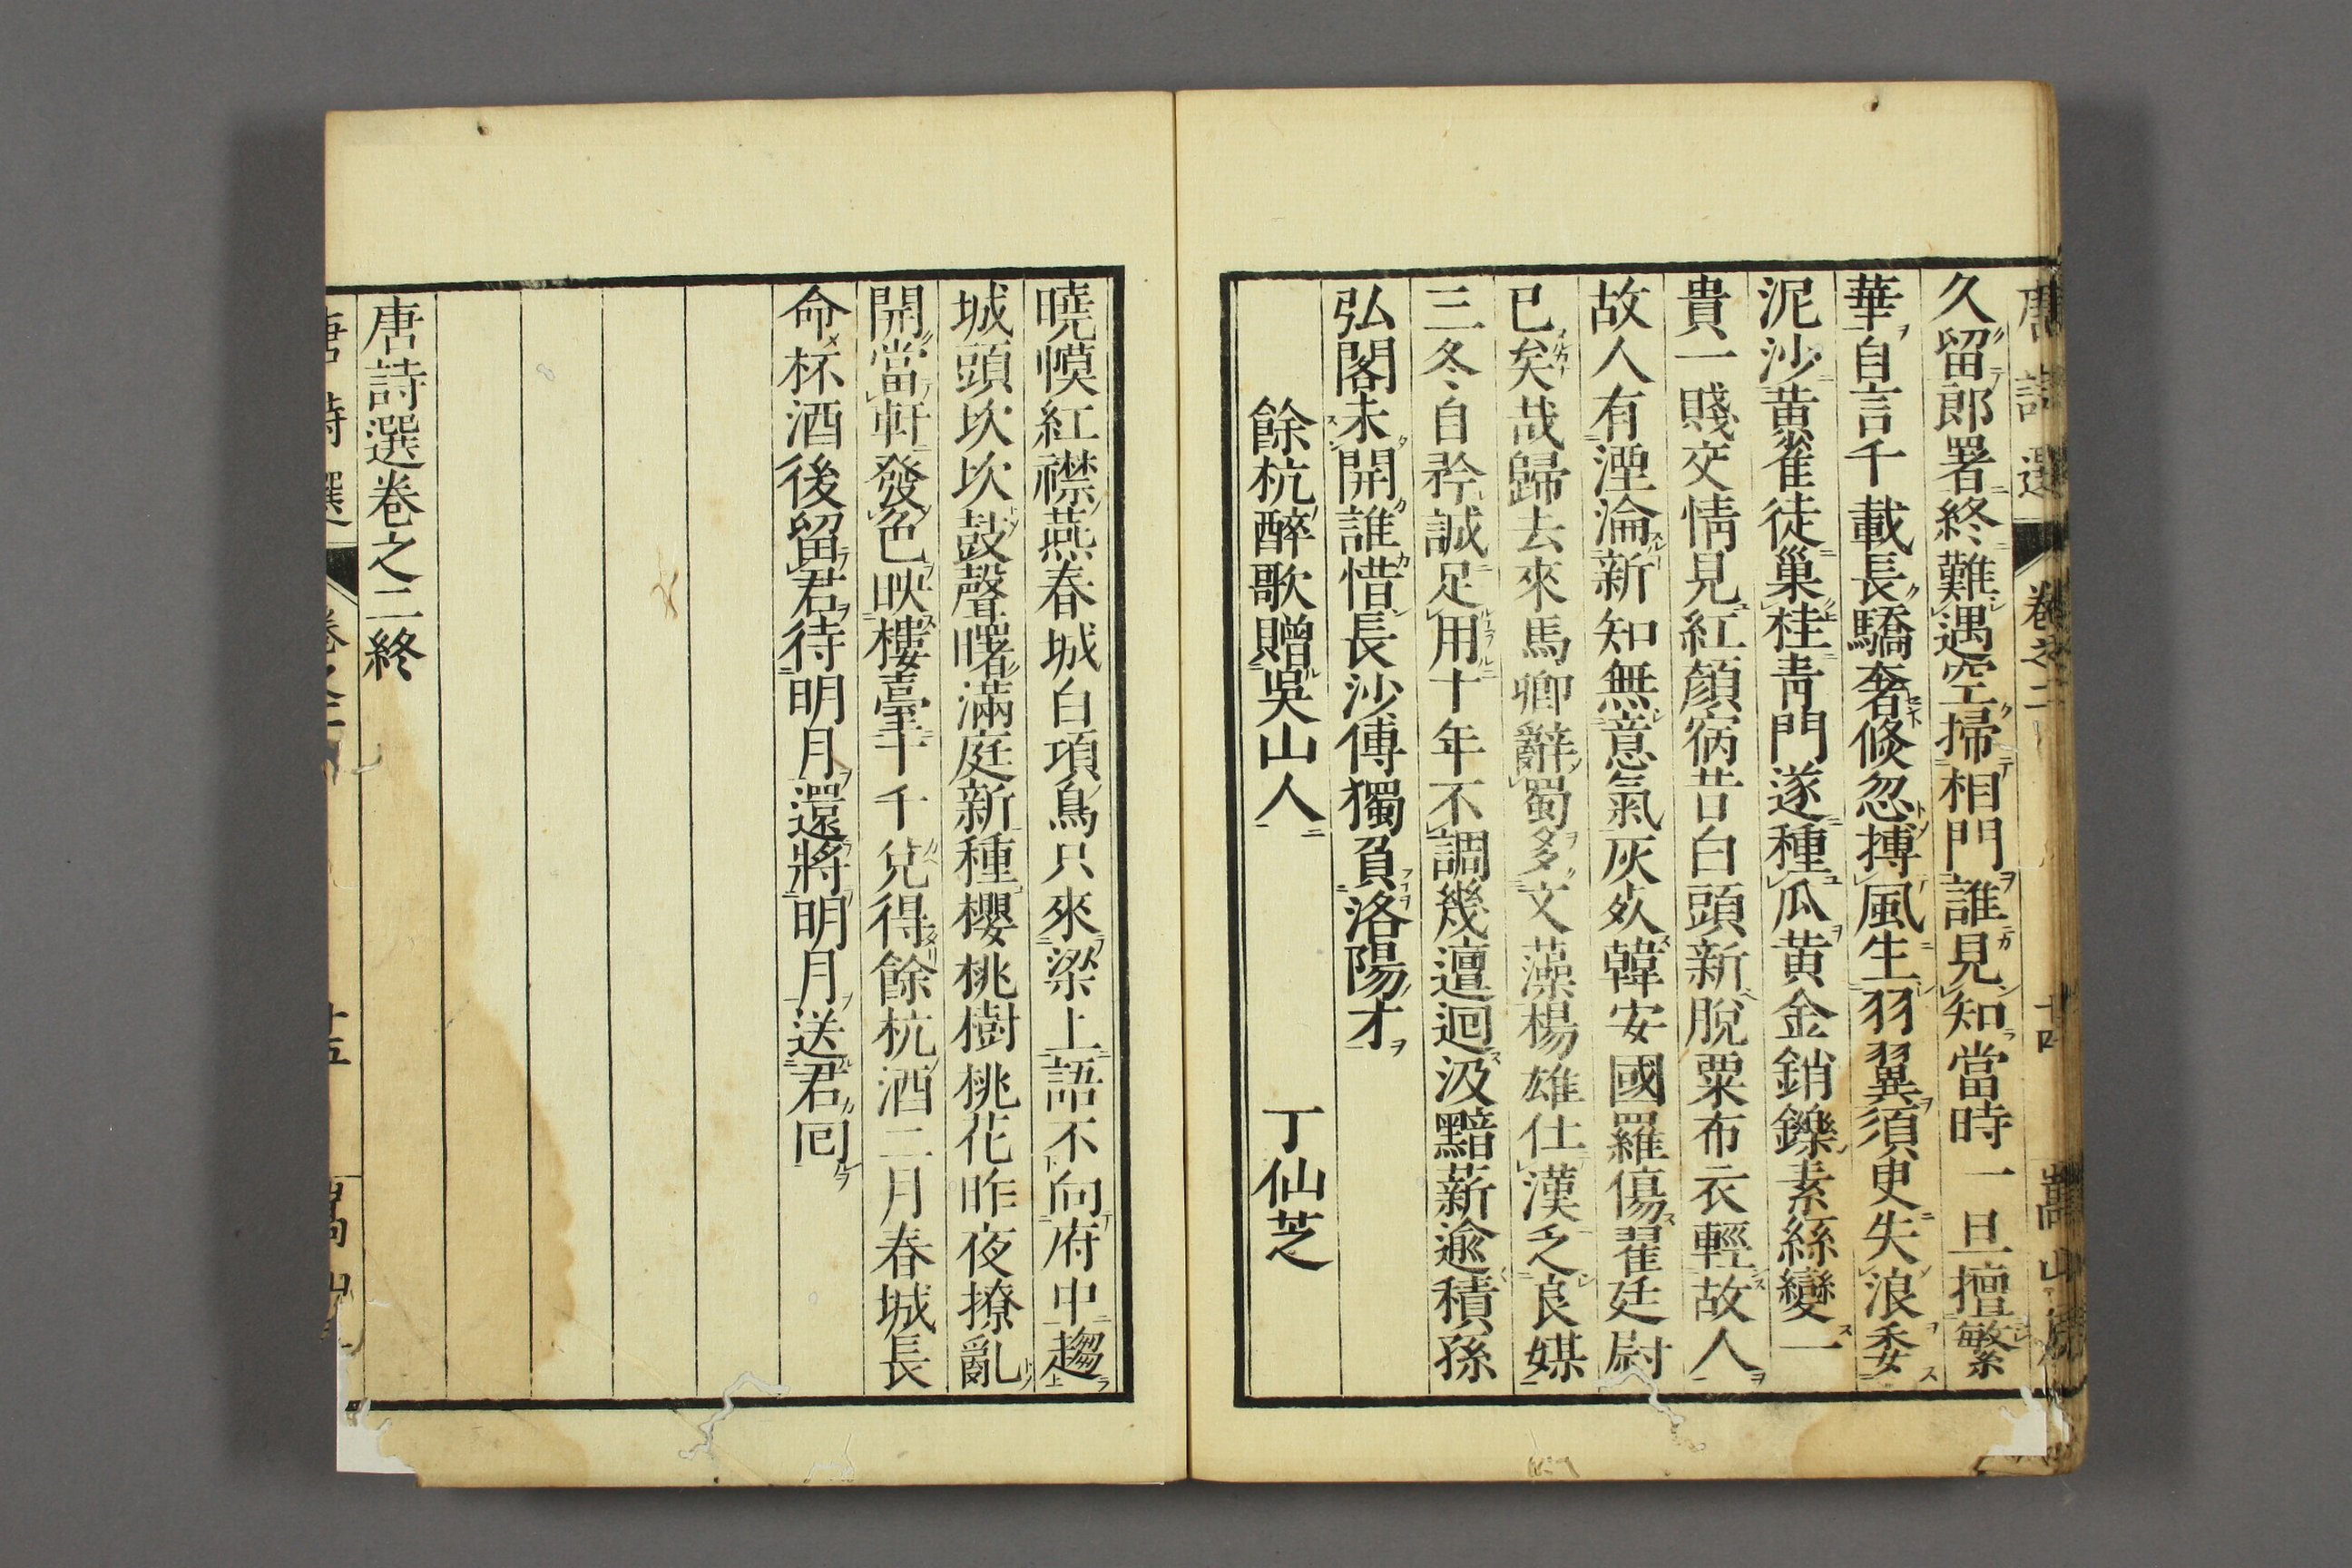 唐詩選 卷之二 十四 嵩山
久留郎署終難遇空掃相門誰見知當時一旦擅繁
華自言千載長驕奢倐忽摶風生羽翼須臾失浪委
泥沙黃雀徒巢桂靑門遂種瓜黃金銷鑠素絲變一
貴一賤交情見紅顏宿昔白頭新脫粟布衣輕故人
故人有湮淪新知無意氣灰死韓安國羅傷翟廷尉
已矣哉歸去來馬卿辭蜀多文藻楊雄仕漢乏良媒
三冬自矜誠足用十年不調幾邅迴汲黯薪逾積孫
弘閣未開誰惜長沙傅獨負洛陽才
餘杭醉歌贈吳山人 丁仙芝
曉幙紅襟燕春城白項烏只來梁上語不向府中趨
城頭坎坎鼓聲曙滿庭新種櫻桃樹桃花昨夜撩亂
開當軒發色映樓臺十千兌得餘杭酒二月春城長
命杯酒後留君待明月還將明月送君囘
唐詩選卷之二終
唐詩選 十五